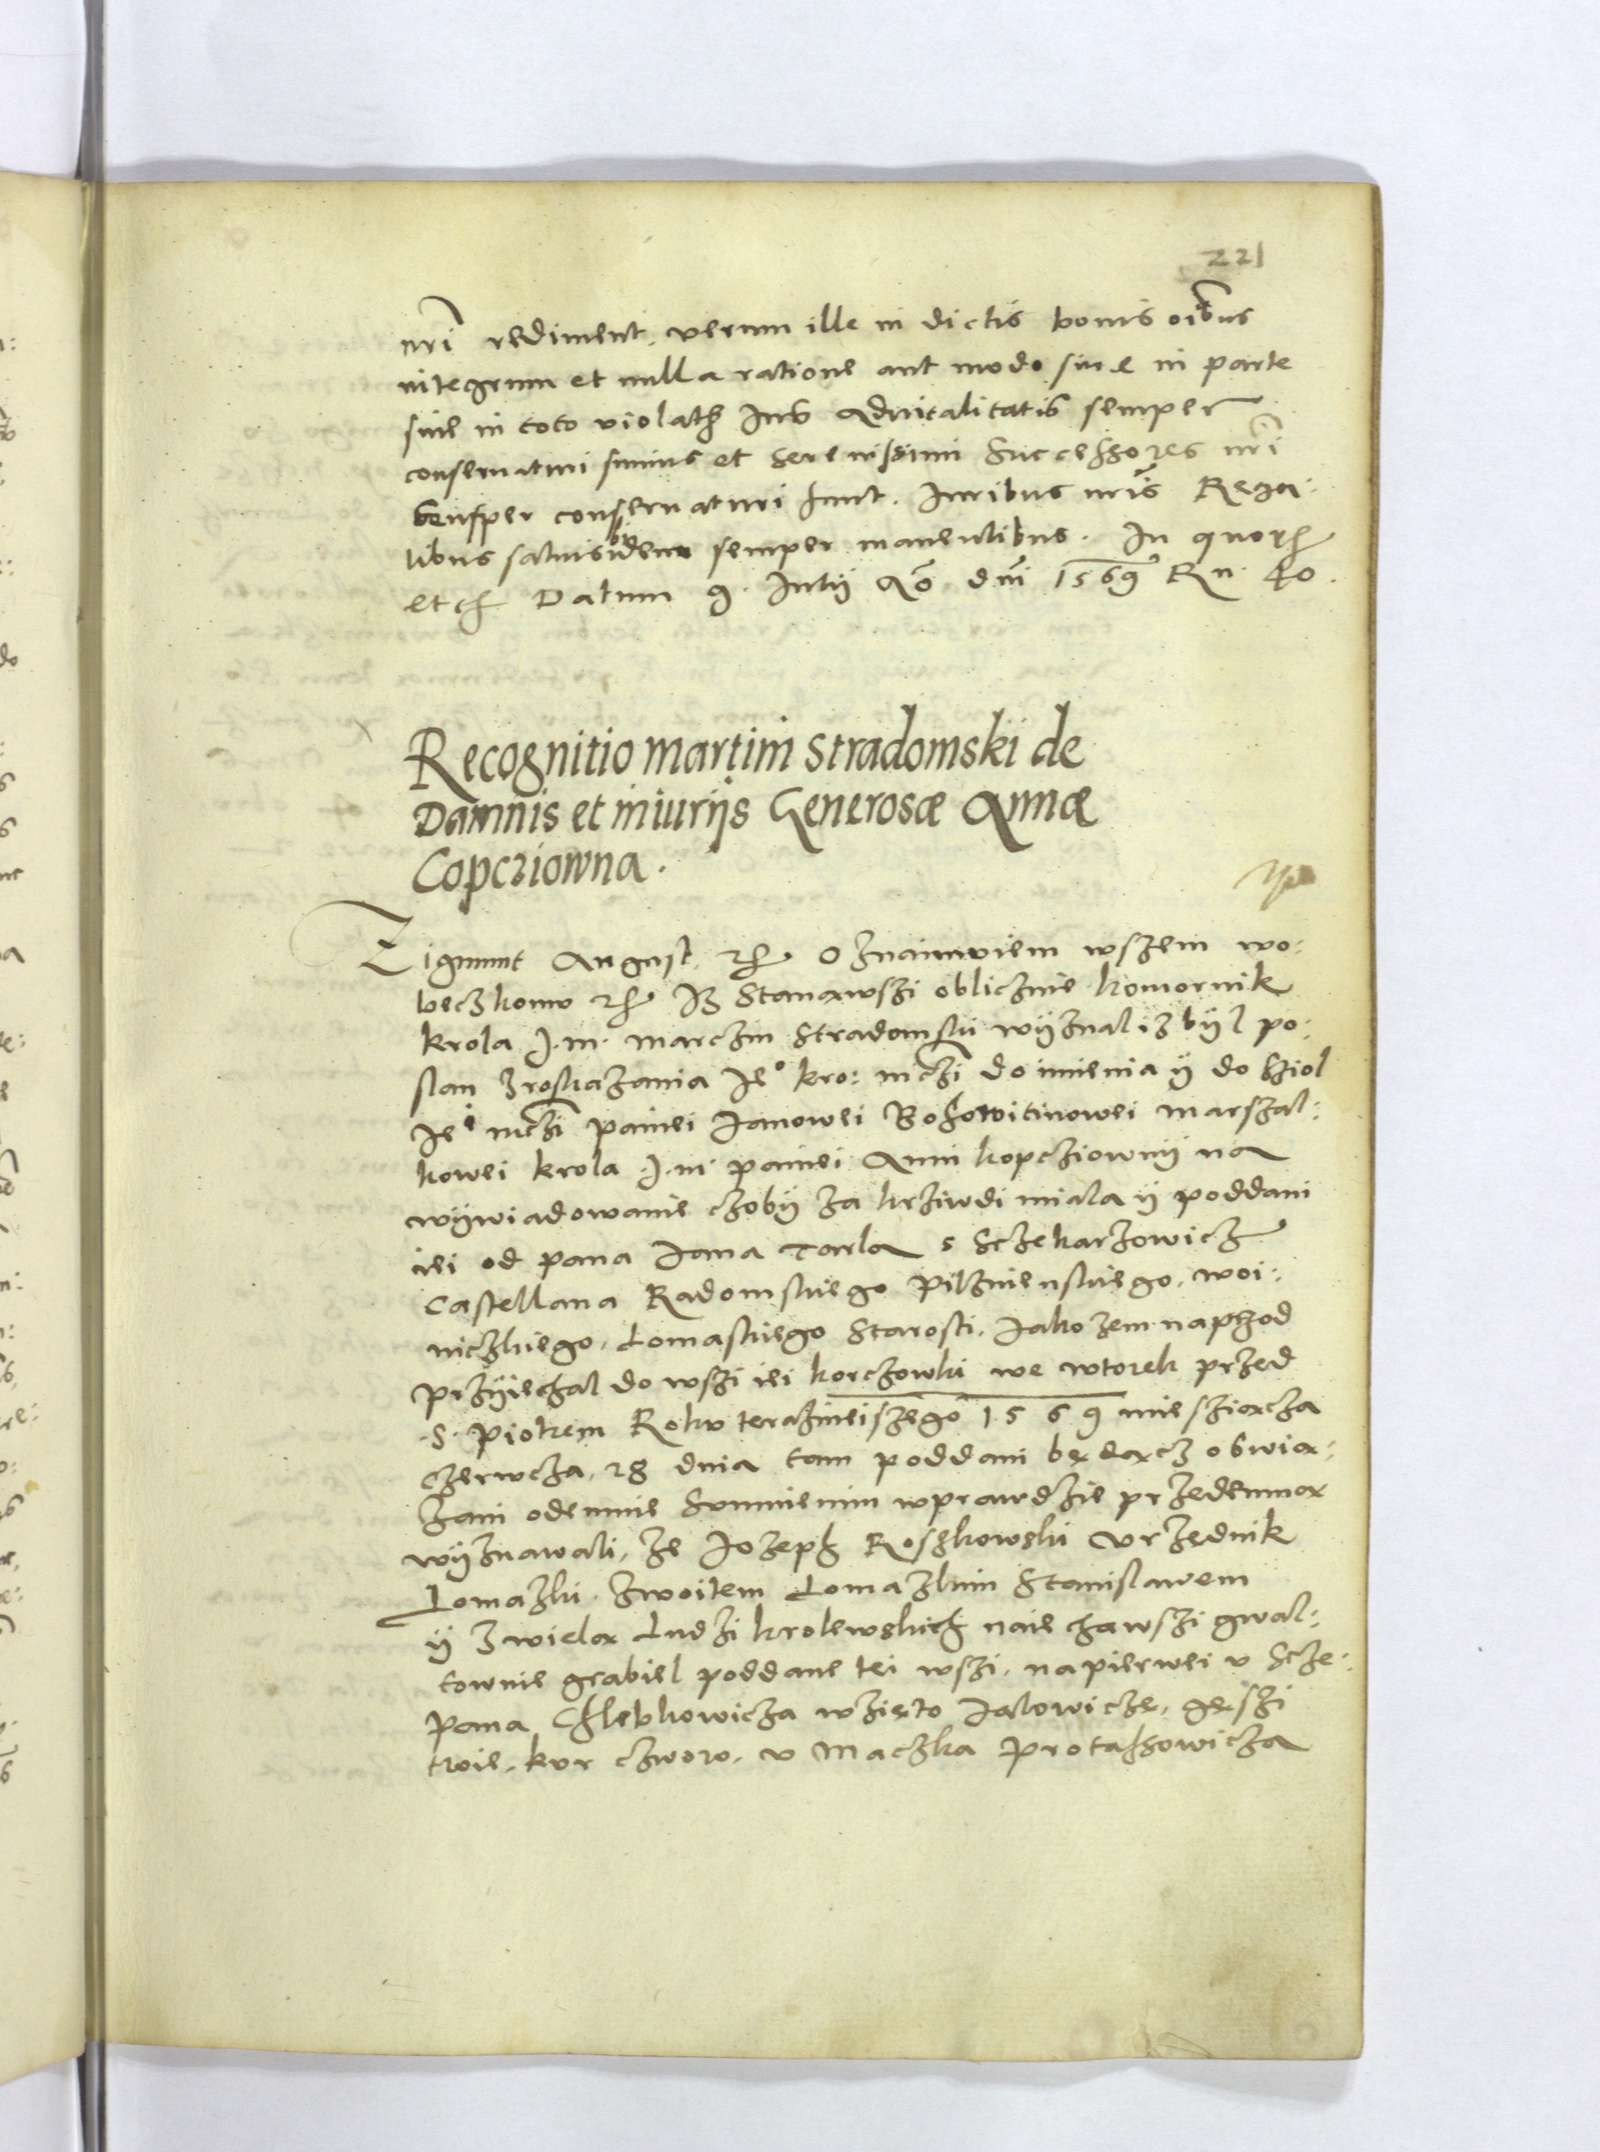 221
nri rediment, verum ille in dictis bonis oibus
integrum et nulla ratione aut modo siue in parte
siue in toto violatũ Ius Aduitalitatis semper
conseruaturi sumus et Serenissimi Successores nri
semper conseruaturi sunt. Iuribus nris Rega:
libus saluis semper manentibus. In quorũ
etc Datum 9. Iulij Aō dni 1569 Rn. 40.
Recognitio martini Stradomski de
Damnis et iniurijs Generosæ Annæ
Copcziowna.
Zigmunt August, etc Oznaimuiem wszem wo:
becz komu etc Iż Stanąwszi oblicznie komornik
krola J. m. Marczin Stradomski wÿznal iż bÿl po:
slan z roskazania Ie° kro: mczi do imienia ÿ do sziol
Ieÿ mczi paniei Ianowei Bohowitinowei marszal:
kowei krola J. m. paniei Anni kopcziownÿ na
wÿwiadowanie czobÿ za krziwdi miala ÿ poddani
iei od pana Iana Tarla s Sczekarzowicz
Castellana Radomskiego Pilznienskiego, woi:
niczkiego, Lomaskiego Starosti, Iakozem naprzod
przÿiechal do wszi iei korczowki we wtorek przed
S. Piotrem Roku terazneiszego 1569 miesziącza
Czerwcza, 28 dnia tam poddani będącz obwią:
zani odemnie Sumnienim wprawdzie przedemną
wÿznawali, że Iozeph Roszkowski Vrzędnik
Lomazki, z woitem Lomazkim Stanislawem
ÿ z wielą Ludzi krolewskich naiechawszi gwal:
townie grabiel poddane tei wszi, napierwei v Scze:
pana Chlebkowicza wzięto Ialowiczę, gęszi
troie, kur czworo, v Maczka Protassowicza